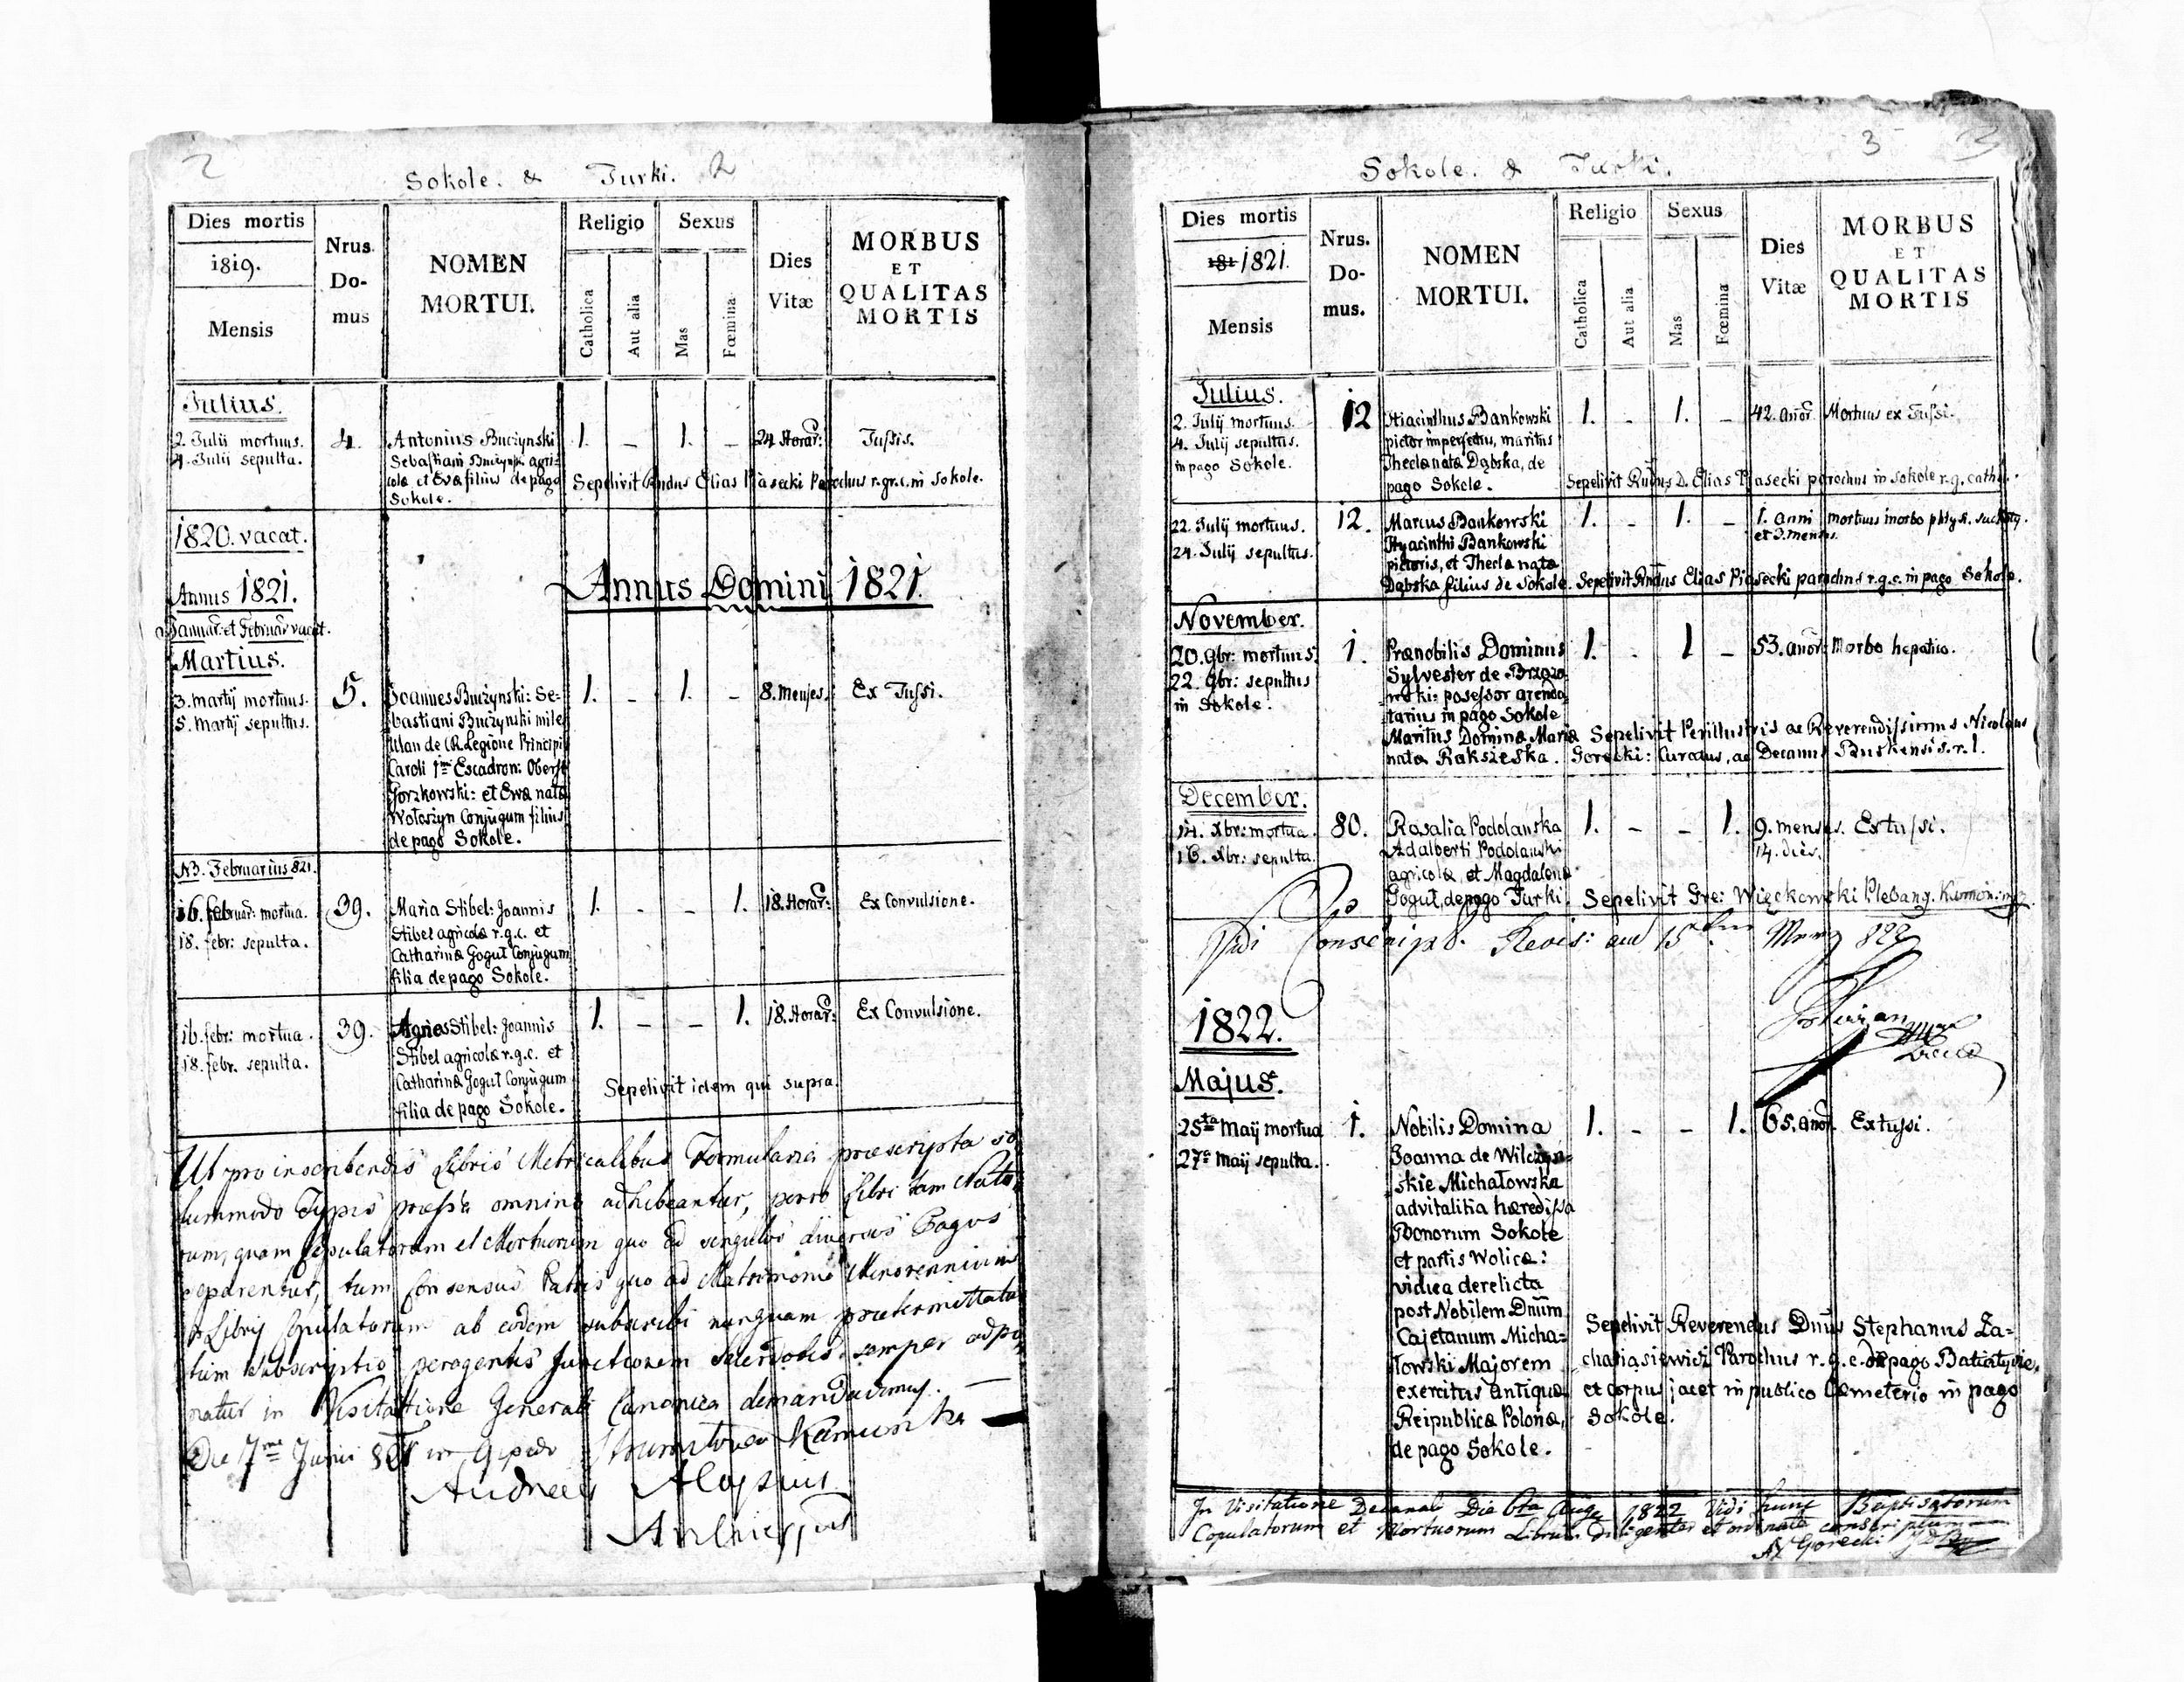 2
Sokole. & Turki. 2
Dies mortis
1819.
Mensis
Nrus.
Do-
mus
NOMEN
MORTUI.
Religio
Catholica
Aut alia
Sexus
Mas
Fœmina
Dies
Vitæ
MORBUS
ET
QUALITAS
MORTIS
Julius.
2. Julii mortuus.
4. Julii sepulta.
4.
Antonius Buczynski
Sebastiani Buczynski agri-
colæ et Evæ filius de pago
Sokole.
1. - 1. -
24 Horar:
Tussis.
Sepelivit Rndus Elias Piasecki Parochus r.gr.c. in Sokole.
1820. vacat.
Annus Domini 1821.
Annus 1821.
Januar: et Februar vacat.
Martius.
3. martij mortuus.
5. Martij sepultus.
5.
Joannes Buczynski: Se-
bastiani Buczynski mile
Ulan de C.R. Legione Principis
Caroli 1mi Escadron: Oberst
Gorzkowski: et Ewa nata
Wołoszyn Conjugum filius
de pago Sokole.
1. - 1. -
8. Menses.
Ex Tussi.
N3. Februarius 821.
16. februar: mortua.
18. febr: sepulta.
39.
Maria Stibel: Joannis
Stibel agricolæ r.g.c. et
Catharinæ Gogut Conjugum
filia de pago Sokole.
1. - - 1.
18. Horar:
Ex Convulsione.
16. febr: mortua.
18. febr. sepulta.
39.
Agnes Stibel: Joannis
Stibel agricolæ r.g.c. et
Catharinæ Gogut Conjugum
filia de pago Sokole.
1. - - 1.
18. Horar:
Ex Convulsione.
Sepelivit idem qui supra.
Ut pro inscribendis Libris Metricalibus Formularia præscripta so
lummodo Typis pressa omnino adhibeantur, porro Libri tam Nato
rum, quam Copulatorum et Mortuorum quo ad singulos diversos Pagos
separentur, tum Consensus Patris quo ad Matrimonia Minorennium
Libris Copulatorum ab eodem subscribi nunquam prætermittatur
tum Subscriptio peragentis functionem Sacerdotis semper adpo
natur in Visitatione Generali Canonica demandavimus. —
Die 7ma Junii 821 in Oppido Kamionka
Andreas Aloysius
3 3
Sokole. & Turki.
Dies mortis
181 1821.
Mensis
Nrus.
Do-
mus.
NOMEN
MORTUI.
Religio
Catholica
Aut alia
Sexus
Mas
Fœmina
Dies
Vitæ
MORBUS
ET
QUALITAS
MORTIS
Julius.
2. Julij mortuus.
4. Julij sepultus.
in pago Sokole.
12
Hiacinthus Bankowski
pictor imperfectus, maritus
Theclæ natæ Dąbska, de
pago Sokole.
1. - 1. -
42. anor.
Mortuus ex Tussi.
Sepelivit Rndus D. Elias Piasecki parochus in Sokole r.g. cath.
22. Julij mortuus.
24. Julij sepultus.
12.
Marcus Bankowski
Hyacinthi Bankowski
pictoris, et Theclæ nata
Dąbska filius de Sokole.
1. - 1. -
1. anni
et 3. mensis.
mortuus morbo
Sepelivit Rndus Elias Piasecki parochus r.g.c. in pago Sokole.
November.
20. 9br: mortuus.
22. 9br: sepultus
in Sokole.
1.
Prænobilis Dominus
Sylvester de Brzozo
wski: posessor arenda
tarius in pago Sokole
Maritus Dominæ Mariæ
nata Rakszeska.
1. - 1 -
53. anor:
Morbo hepatico.
Sepelivit Perillustris ac Reverendissimus Nicolaus
Gorecki: Curatus, ac Decanus Buskensis r. l.
December.
14. xbr: mortua.
16. Xbr: sepulta.
80.
Rosalia Podolanska
Adalberti Podolanski
agricolæ, et Magdalena
Gogut, de pago Turki.
1. - - 1.
9. menses.
14. dies.
Ex tussi.
Sepelivit Gre: Więckowski Plebany. Kamion:
Vidi Conscript. Revis: am 15ten 822
1822.
Majus.
25ta Maij mortua
27a Maij sepulta.
1.
Nobilis Domina
Joanna de Wilczyn-
skie Michałowska
advitalitia hæredissa
Bonorum Sokole
et partis Wolicæ:
vidua derelicta
post Nobilem Dnum
Cajetanum Micha-
łowski Majorem
exercitus antiquæ
Reipublicæ Polonæ,
de pago Sokole.
1. - - 1.
65. anor.
Ex tussi.
Sepelivit Reverendus Dnus Stephanus Za-
chariasiewicz Parochus r.g.c. de pago Batiatycze,
et corpus jacet in publico Cæmeterio in pago
Sokole.
In Visitatione Decanali Die 6ta Aug. 1822 Vidi hunc Baptisatorum
Copulatorum et Mortuorum Librum diligenter et ordinate conscriptum
N Gorecki